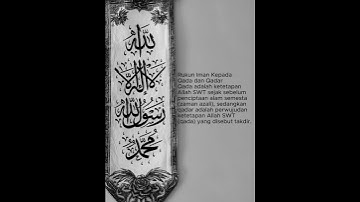 الله
لا إله إلا
رسول الله
محمد
Rukun Iman Kepada
Qada dan Qadar
Qada adalah ketetapan
Allah SWT sejak sebelum
penciptaan alam semesta
(zaman azali), sedangkan
qadar adalah perwujudan
ketetapan Allah SWT
(qada) yang disebut takdir.